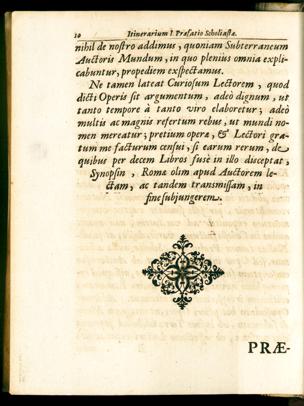 10 Itinerarium I. Præfatio Scholiastæ.
nihil de nostro addimus, quoniam Subterraneum
Auctoris Mundum, in quo plenius omnia expli-
cabuntur, propediem exspectamus.
Ne tamen lateat Curiosum Lectorem, quod
dicti Operis sit argumentum, adeò dignum, ut
tanto tempore à tanto viro elaboretur; adeò
multis ac magnis refertum rebus, ut mundi no-
men mereatur; pretium operæ, & Lectori gra-
tum me facturum censui, si earum rerum, de
quibus per decem Libros fusè in illo disceptat,
Synopsin, Romæ olim apud Auctorem le-
ctam, ac tandem transmissam, in
fine subjungerem.
PRÆ-